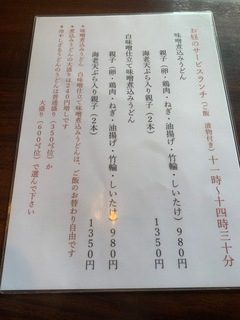 お昼のサービスランチ(ご飯 漬物付き)十一時〜十四時三十分
味噌煮込みうどん
親子(卵・鶏肉・ねぎ・油揚げ・竹輪・しいたけ)980円
海老天ぷら入り親子(2本) 1350円
白味噌仕立て味噌煮込みうどん
親子(卵・鶏肉・ねぎ・油揚げ・竹輪・しいたけ)980円
海老天ぷら入り親子(2本) 1350円
*味噌煮込みうどん、白味噌仕立て味噌煮込みうどんは、ご飯のお替わり自由です
*煮込みうどんの大盛りは240円増しです
*冷やしざるうどんのうどんは普通盛り(350g位)か
大盛り(600g位)で選んで下さい